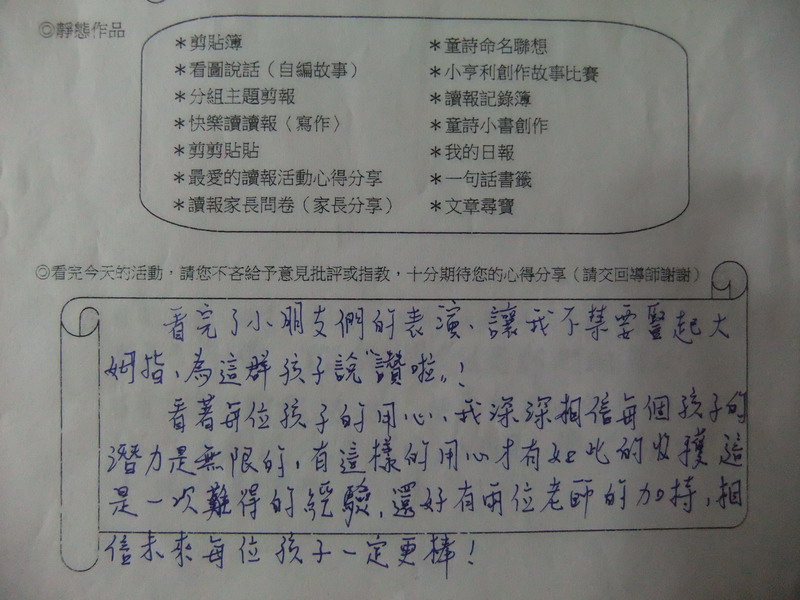 ◎靜態作品
＊剪貼簿
＊看圖說話（自編故事）
＊分組主題剪報
＊快樂讀讀報〈寫作〉
＊剪剪貼貼
＊最愛的讀報活動心得分享
＊讀報家長問卷（家長分享）
＊童詩命名聯想
＊小亨利創作故事比賽
＊讀報記錄簿
＊童詩小書創作
＊我的日報
＊一句話書籤
＊文章尋寶
◎看完今天的活動，請您不吝給予意見批評或指教，十分期待您的心得分享（請交回導師謝謝）
看完了小朋友們的表演、讓我不禁要豎起大
姆指、為這群孩子說"讚啦"！
看著每位孩子的用心、我深深相信每個孩子的
潛力是無限的，有這樣的用心才有如此的收穫 這
是一次難得的經驗，還好有兩位老師的加持，相
信未來每位孩子一定更棒！